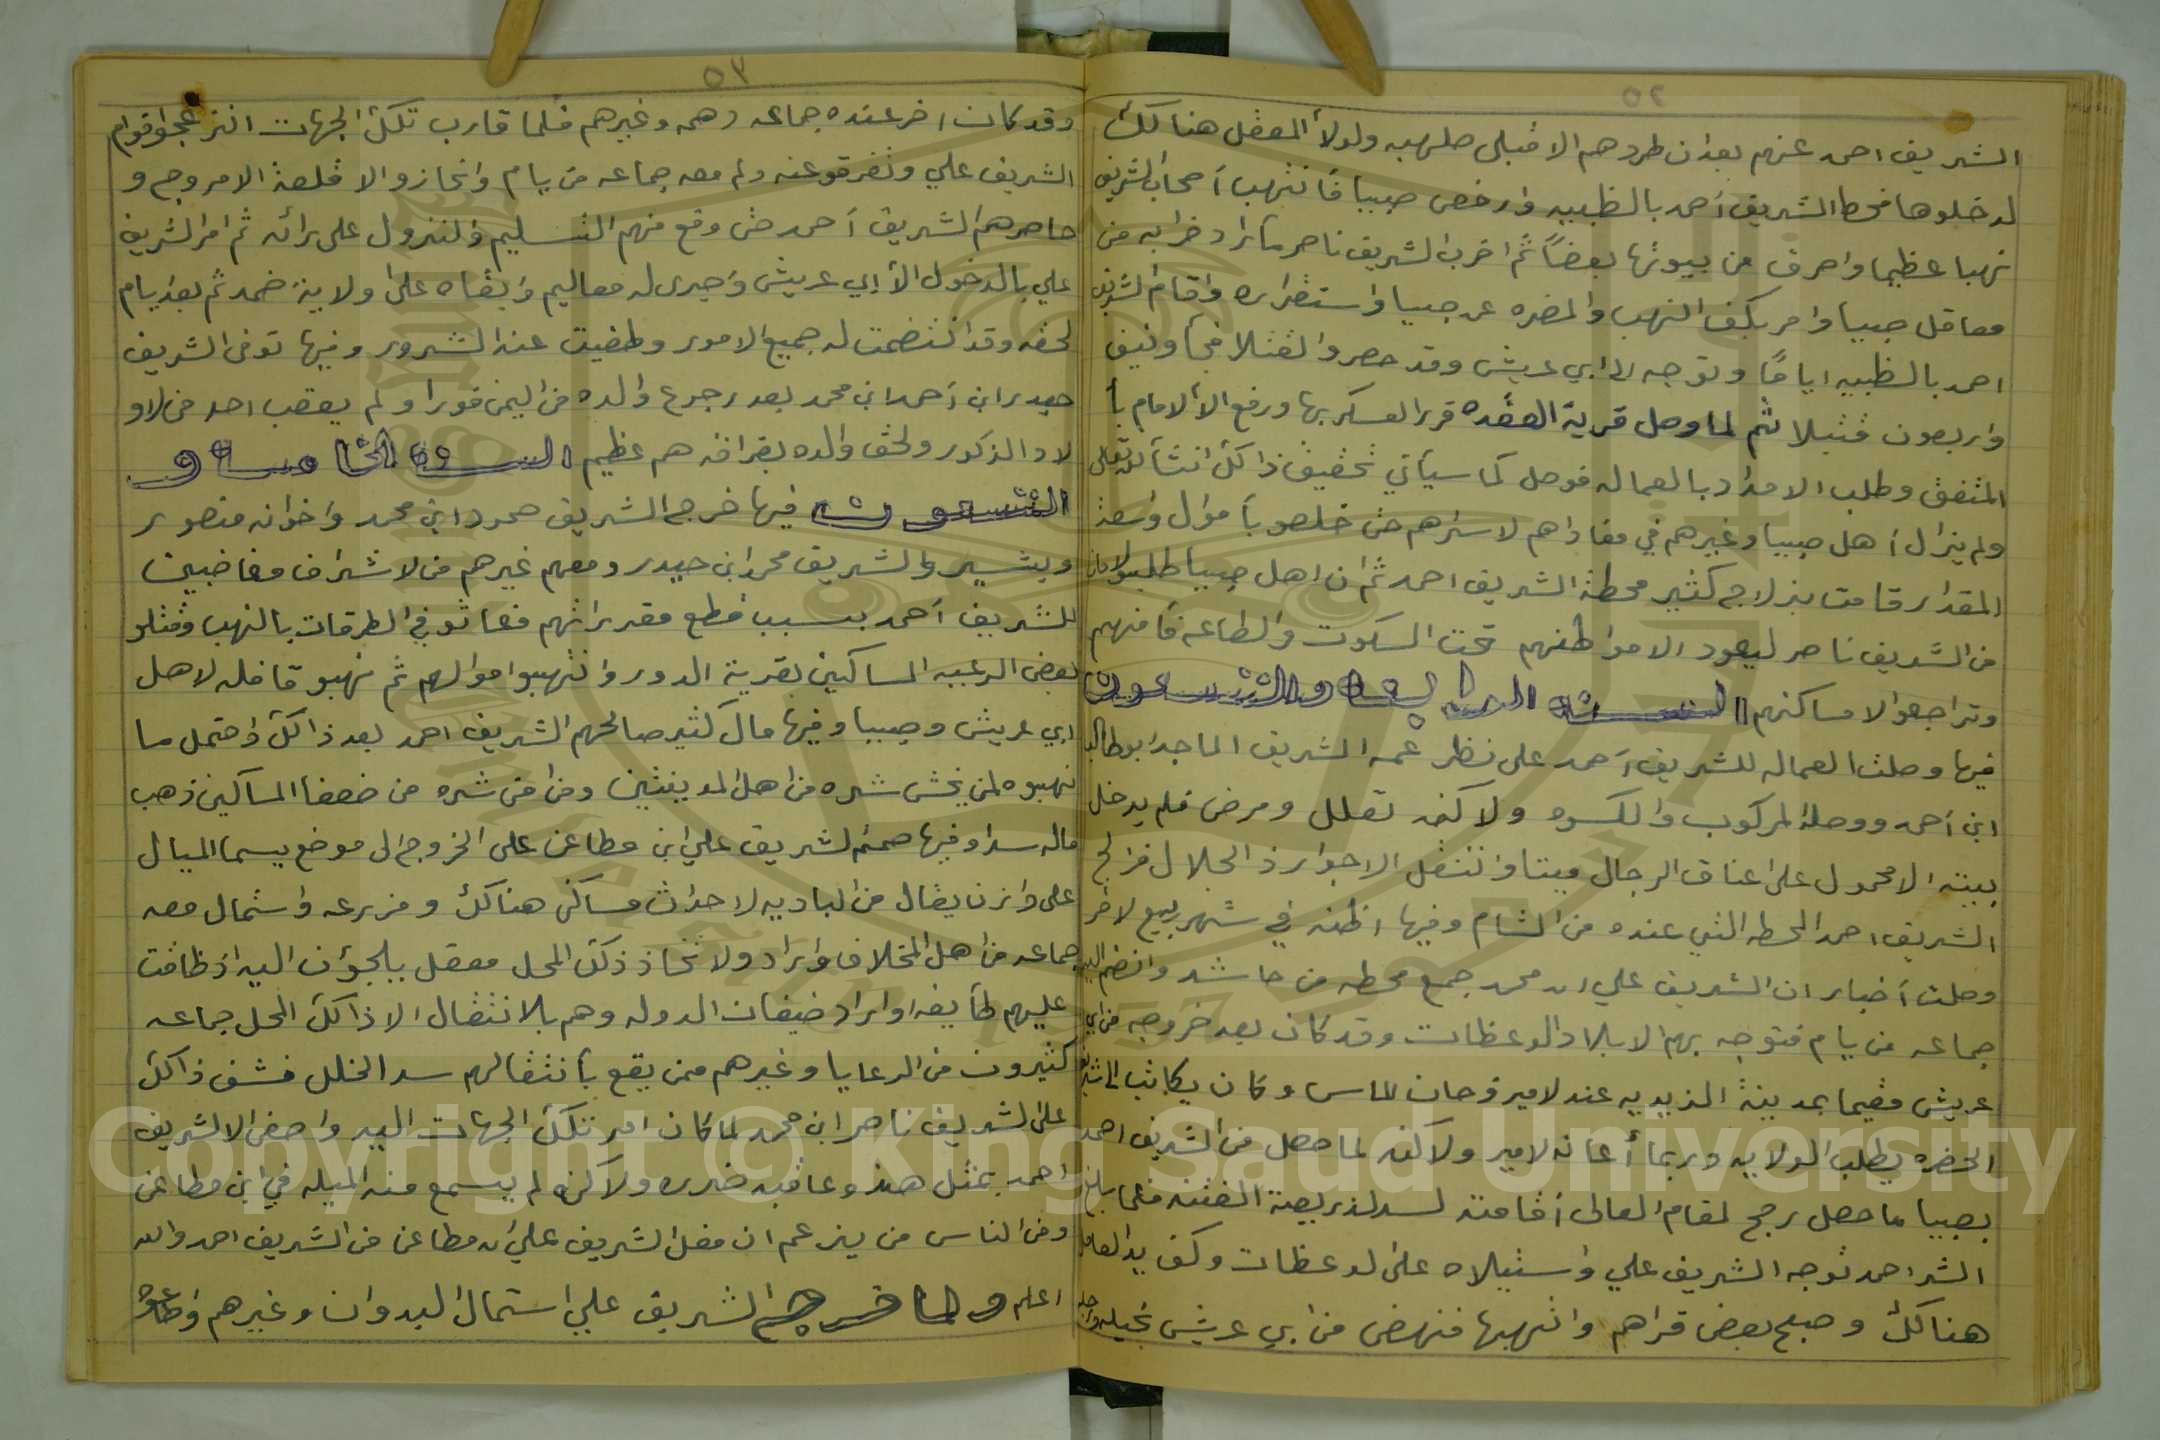 ٥٢
الشريف احمد عنهم بعد ان طردهم الا قبلي صلهبه ولولا المعقل هنالك
لدخلوها فحط الشريف أحمد بالظبيه وارخص صبيا فانتهب أصحاب الشريف
نهبا عظيما واحرق من بيوتها بعضاً ثم اخرب الشريف ناصر ما اراد خرابه من
معاقل صبيا وامر بكف النهب والمضره عن صبيا واستقراره واقام الشريف
احمد بالظبيه اياماً وتوجه الى ابي عريش وقد حصروا القتلا ونيف
واربعون قتيلا ثم لما وصل قرية العقده قرر العسكر بها ورفع الا الامام با
المتفق وطلب الامداد بالعماله فوصل كما سيأتي تحقيق ذالك انشأ لله تعالى
ولم يزال أهل صبيا وغيرهم في مفاداهم لاسراهم حتى خلصو بأموال واسعة
المقدار قامت بنزلاج كثير محطة الشريف احمد ثم ان اهل صبيا طلبو الامان
من الشريف ناصر ليعود الا مواطنهم تحت السكوت والطاعه فأمنهم
وتراجعوا لا مساكنهم السنة الرابعة والتسعون
فيها وصلت العماله للشريف أحمد على نظر عمه الشريف الماجد ابوطالب
ابن أحمد ووصله المركوب والكسوه ولاكنه تعلل ومرض فلم يدخل
بيته الا محمول على اعناق الرجال ميتا وانتقل الا جوار ذا الجلال
الشريف احمد المحطه التي عنده من الشام وفيها اظنه في شهر ربيع لاخر
وصلت أخبار ان الشريف علي ابن محمد جمع محطه من حاشد وانضم اليه
جماعه من يام فتوجه بهم الا بلاد الوعظات وقد كان بعد خروجه من ابي
عريش مقيما بمدينة الزيديه عند لامير فرحان الماس وكان يكاتب
الحضره يطلب الولايه وربما أعانه لامير ولاكنه لما حصل من الشريف احمد
بصبيا ما حصل رجح لمقام العالى أقامته لسد لذريعة الفتنه فلما بلغ
الشر احمد توجه الشريف علي واستيلاه على لوعظات وكف يد العامل
هنالك وصبح بعض قراهم وانتهبها فنهض من ابي عريش بخيله ورجله
٥٣
وقد كان اخر عنده جماعه دهمه وغيرهم فلما قارب تلك الجهات انزعج اقوام
الشريف علي وتفرقو عنه ولم معه جماعه من يام وانحازوا الا قلعة الامروج و
حاصرهم الشريف أحمد حتى وقع منهم التسليم والنزول على رائه ثم امر الشريف
علي بالدخول الأ ابي عريش وأجرى له معاليم وابقاه على ولاية ضمد ثم بعد يام
لحقه وقد انتضمت له جميع الامور وطفيت عند الشرور وفيها توفى الشريف
حيدر ابن أحمد ابن محمد بعد رجوع والده من اليمن فورا ولم يعقب احد من لاو
لاد الذكور ولحق والده بفراقه هم عظيم السنة الخامسة و
التسعون فيها خرج الشريف حمود ابن محمد واخوانه منصور
وبشير والشريف محمد ابن حيدر ومعهم غيرهم من لاشراف مغاضبين
للشريف أحمد بسبب قطع مقرراتهم فعاثو في الطرقات بالنهب وقتلو
بعض الرعيه المساكين بقرية الدور وانتهبوا موالهم ثم نهبو قافله لاهل
ابي عريش وصبيا وفيها مال كثير صالحهم الشريف احمد بعد ذالك واحتمل ما
نهبوه لمن يخش شره من اهل المدينتين ومن امن شره من ضعفا المساكين ذهب
ماله سدا وفيها صمم لشريف علي ابن مطاعن على الخروج الى موضع يسما الميال
على وازن يقال من الباديه لاحداث مساكن هنالك ومزرعه واستمال معه
جماعه من اهل المخلاف واراد ولاتخاذ ذلك المحل معقل يلجؤن اليه اذ ظاقت
عليهم طأيفه او اراد ضيفان الدوله وهم بالانتقال الا ذالك المحل جماعه
كثيرون من الرعايا وغيرهم ممن يقع بأنتقالهم سد الخلل فشق ذالك
على لشريف ناصر ابن محمد لما كان امر تلك الجهات اليه واصفى الا لشريف
احمد بمثل هذ وعاقبه ضرره ولاكنه لم يسمع منه الميله في ابن مطاعن
ومن الناس من يزعم ان فعل الشريف علي ابن مطاعن من الشريف احمد والله
اعلم ولما خرج الشريف علي استمال البدوان وغيرهم واطاعوه